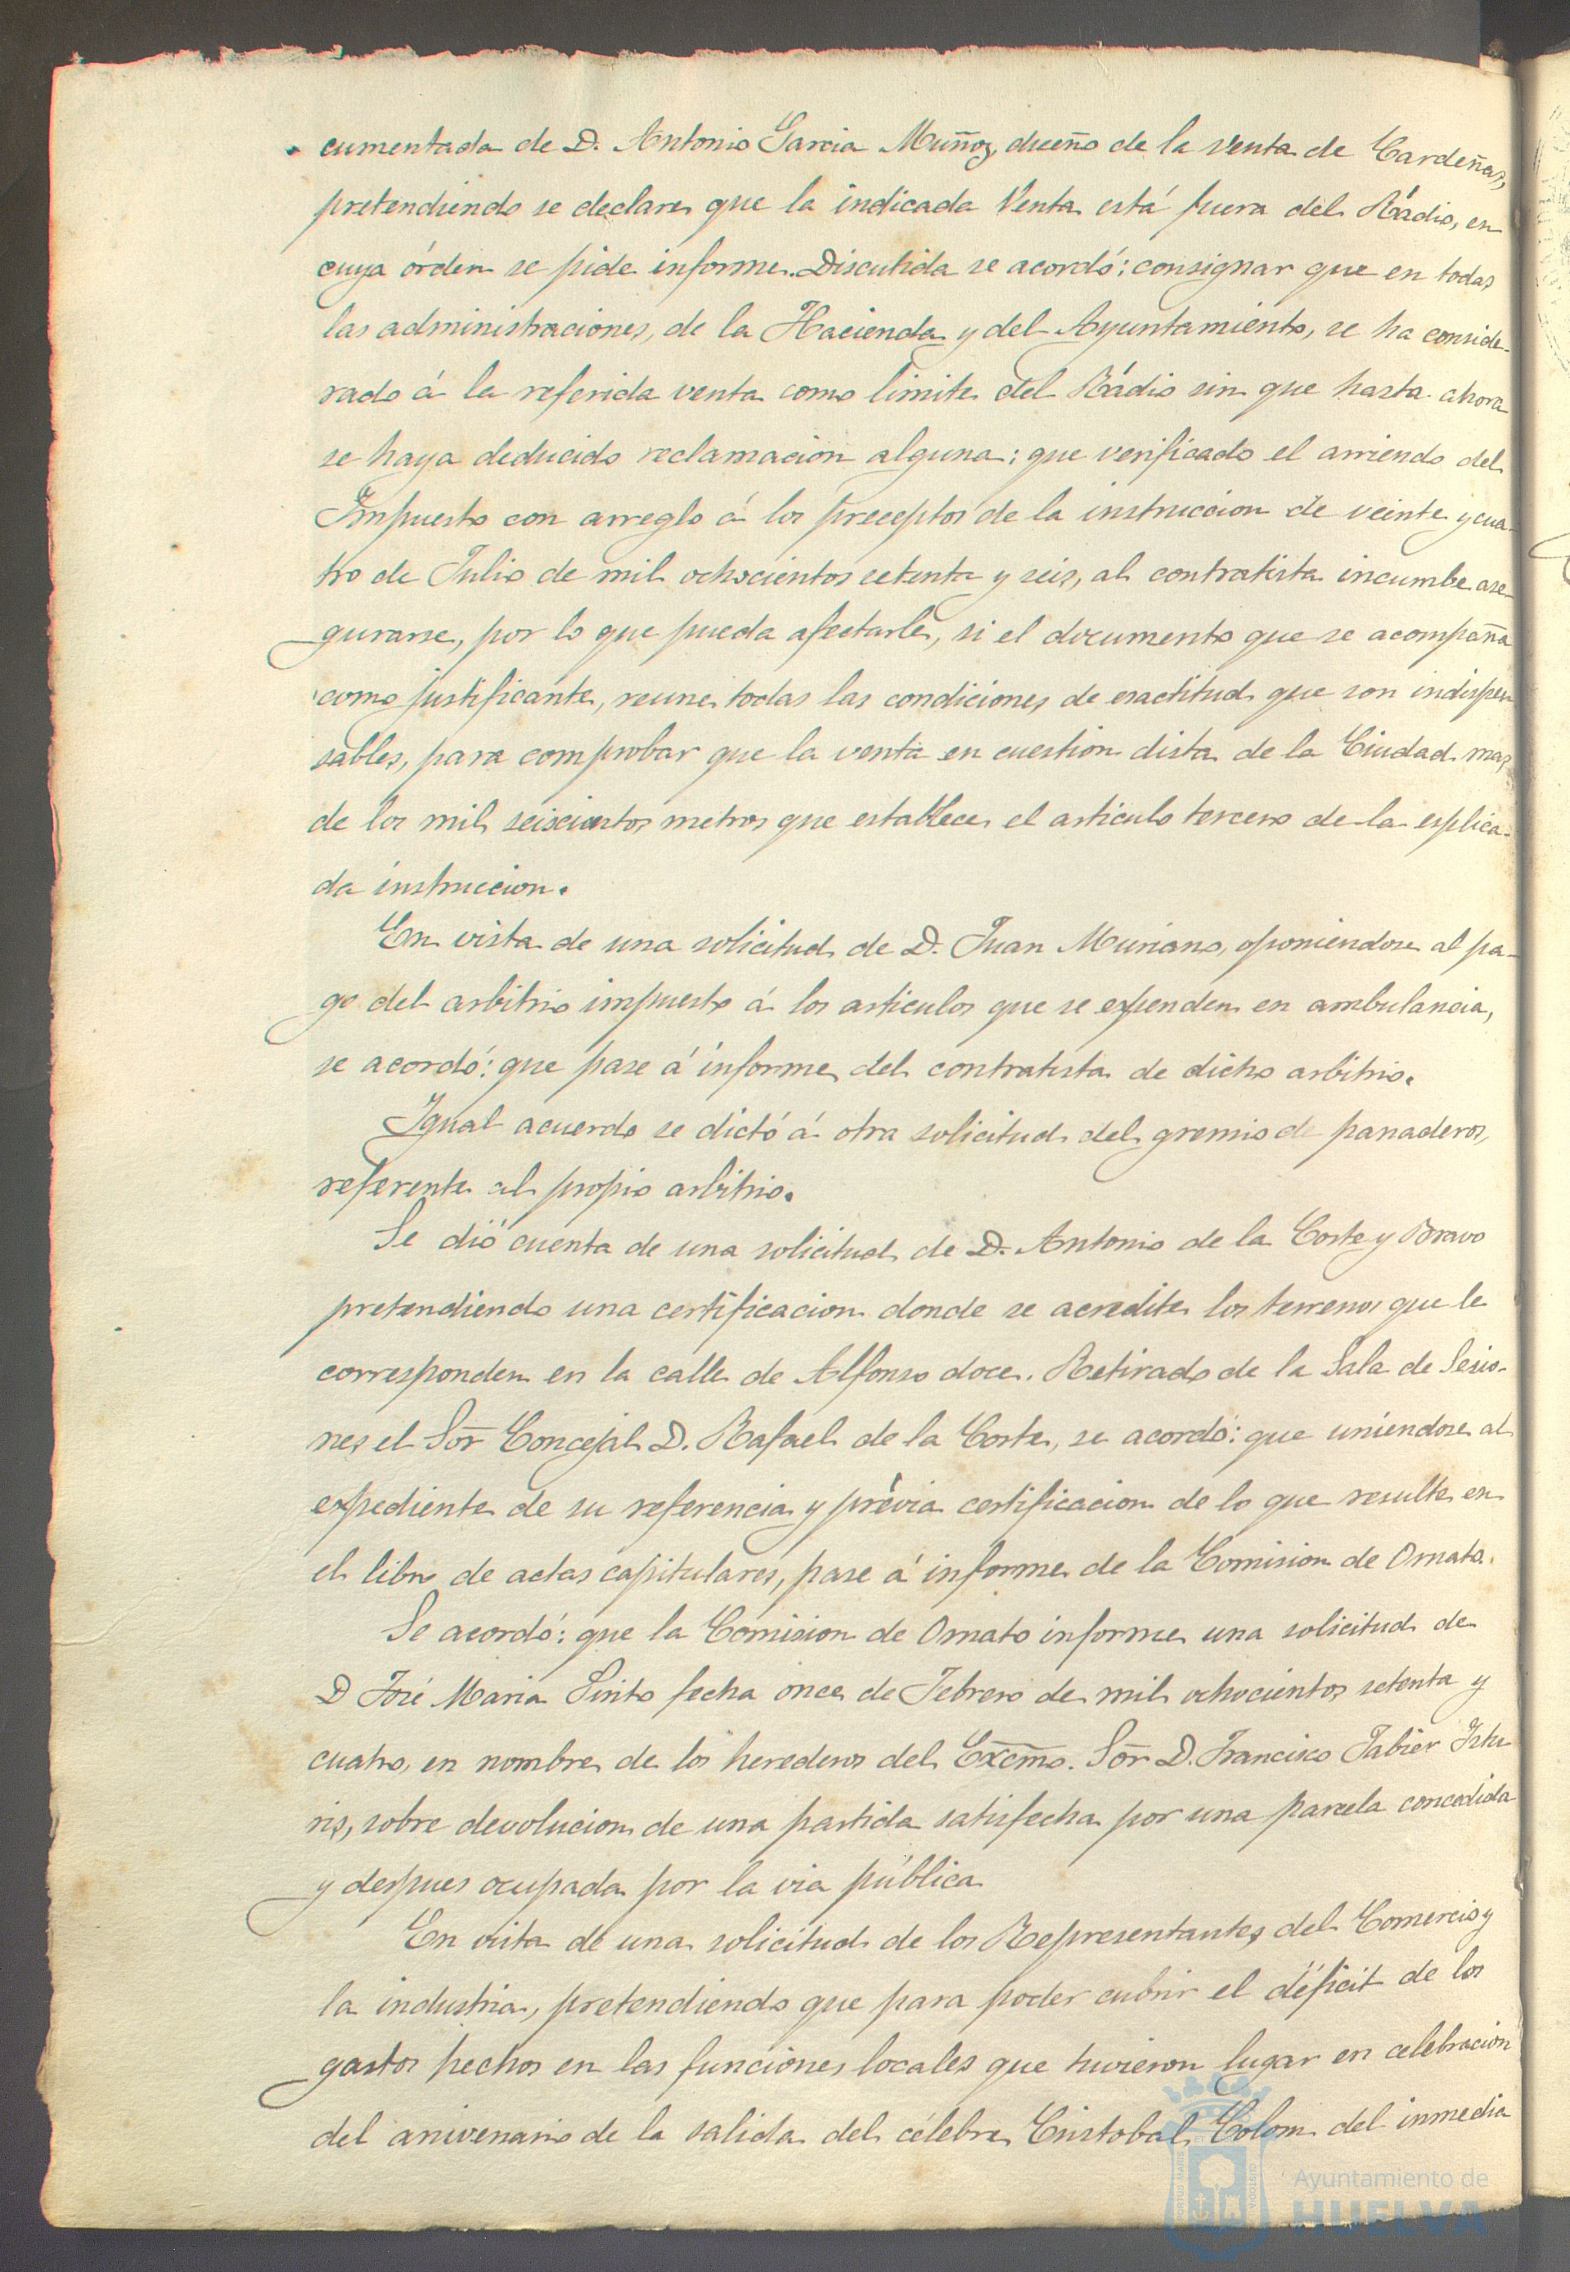 cumentada de D. Antonio Garcia Muñoz, dueño de la Venta de Cardeñas,
pretendiendo se declare que la indicada Venta está fuera del Rádio, en
cuya órden se pide informe. Discutida se acordó: consignar que en todas
las administraciones, de la Hacienda y del Ayuntamiento, se ha conside-
rado á la referida venta como limite del Rádio sin que hasta ahora
se haya deducido reclamacion alguna: que verificado el arriendo del
Impuesto con arreglo á los preceptos de la instruccion de veinte y cua-
tro de Julio de mil ochocientos setenta y seis, al contratista incumbe ase-
gurarse, por lo que pueda afectarle, si el documento que se acompaña
como justificante, reune todas las condiciones de esactitud que son indispen
sables, para comprobar que la venta en cuestion dista de la Ciudad mas
de los mil seiscientos metros que establece el articulo tercero de la esplica-
da instruccion.
En vista de una solicitud de D. Juan Muriano, oponiendose al pa-
go del arbitrio impuesto á los articulos que se espenden en ambulancia,
se acordó: que pase á informe del contratista de dicho arbitrio.
Igual acuerdo se dictó á otra solicitud del gremio de panaderos,
referente al propio arbitrio.
Se dió cuenta de una solicitud de D. Antonio de la Corte y Bravo
pretendiendo una certificacion donde se acredite los terrenos que le
corresponden en la calle de Alfonso doce. Retirado de la Sala de Sesio-
nes el Sor̃ Concejal D. Rafael de la Corte, se acordó: que uniendose al
expediente de su referencia y prévia certificacion de lo que resulte en
el libro de actas capitulares, pase á informe de la Comision de Ornato.
Se acordó: que la Comision de Ornato informe una solicitud de
D José Maria Pinto fecha once de Febrero de mil ochocientos setenta y
cuatro, en nombre de los herederos del Excm̃o. Sor̃ D. Francisco Jabier Istu
ris, sobre devolucion de una partida satisfecha por una parcela concedida
y despues ocupada por la via pública
En vista de una solicitud de los Representantes del Comercio y
la industria, pretendiendo que para poder cubrir el déficit de los
gastos hechos en las funciones locales que tuvieron lugar en celebracion
del aniversario de la salida del célebre Cristobal Colom del inmedia
Ayuntamiento de
HUELVA